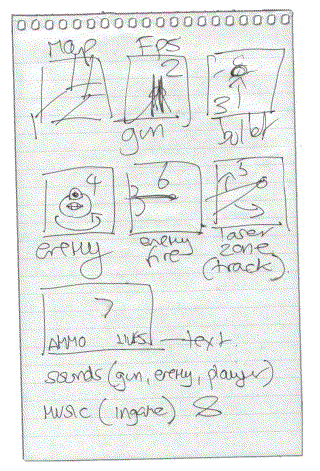 Map FPS
1 2 3
gun bullet
4 6 5
enemy enemy fire laser zone (track)
7
AMMO LIVES — text.
sounds (gun, enemy, player)
MUSIC (ingame) 8